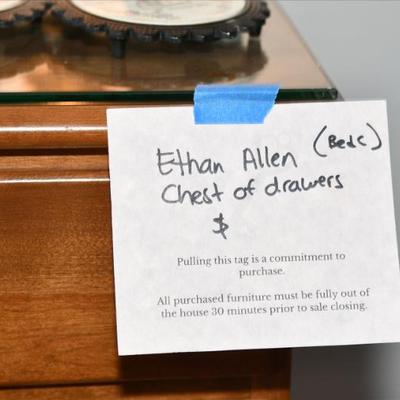 Ethan Allen (Bed C)
Chest of drawers
$
Pulling this tag is a commitment to
purchase.
All purchased furniture must be fully out of
the house 30 minutes prior to sale closing.